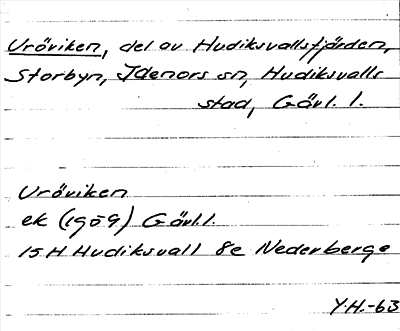 Uröviken, del av Hudiksvallsfjärden,
Storbyn, Idenors sn, Hudiksvalls
stad, Gävl. l.
Uröviken
ek (1959) Gävl.l.
15 H Hudiksvall 8e Nederberge
Y.H.-63